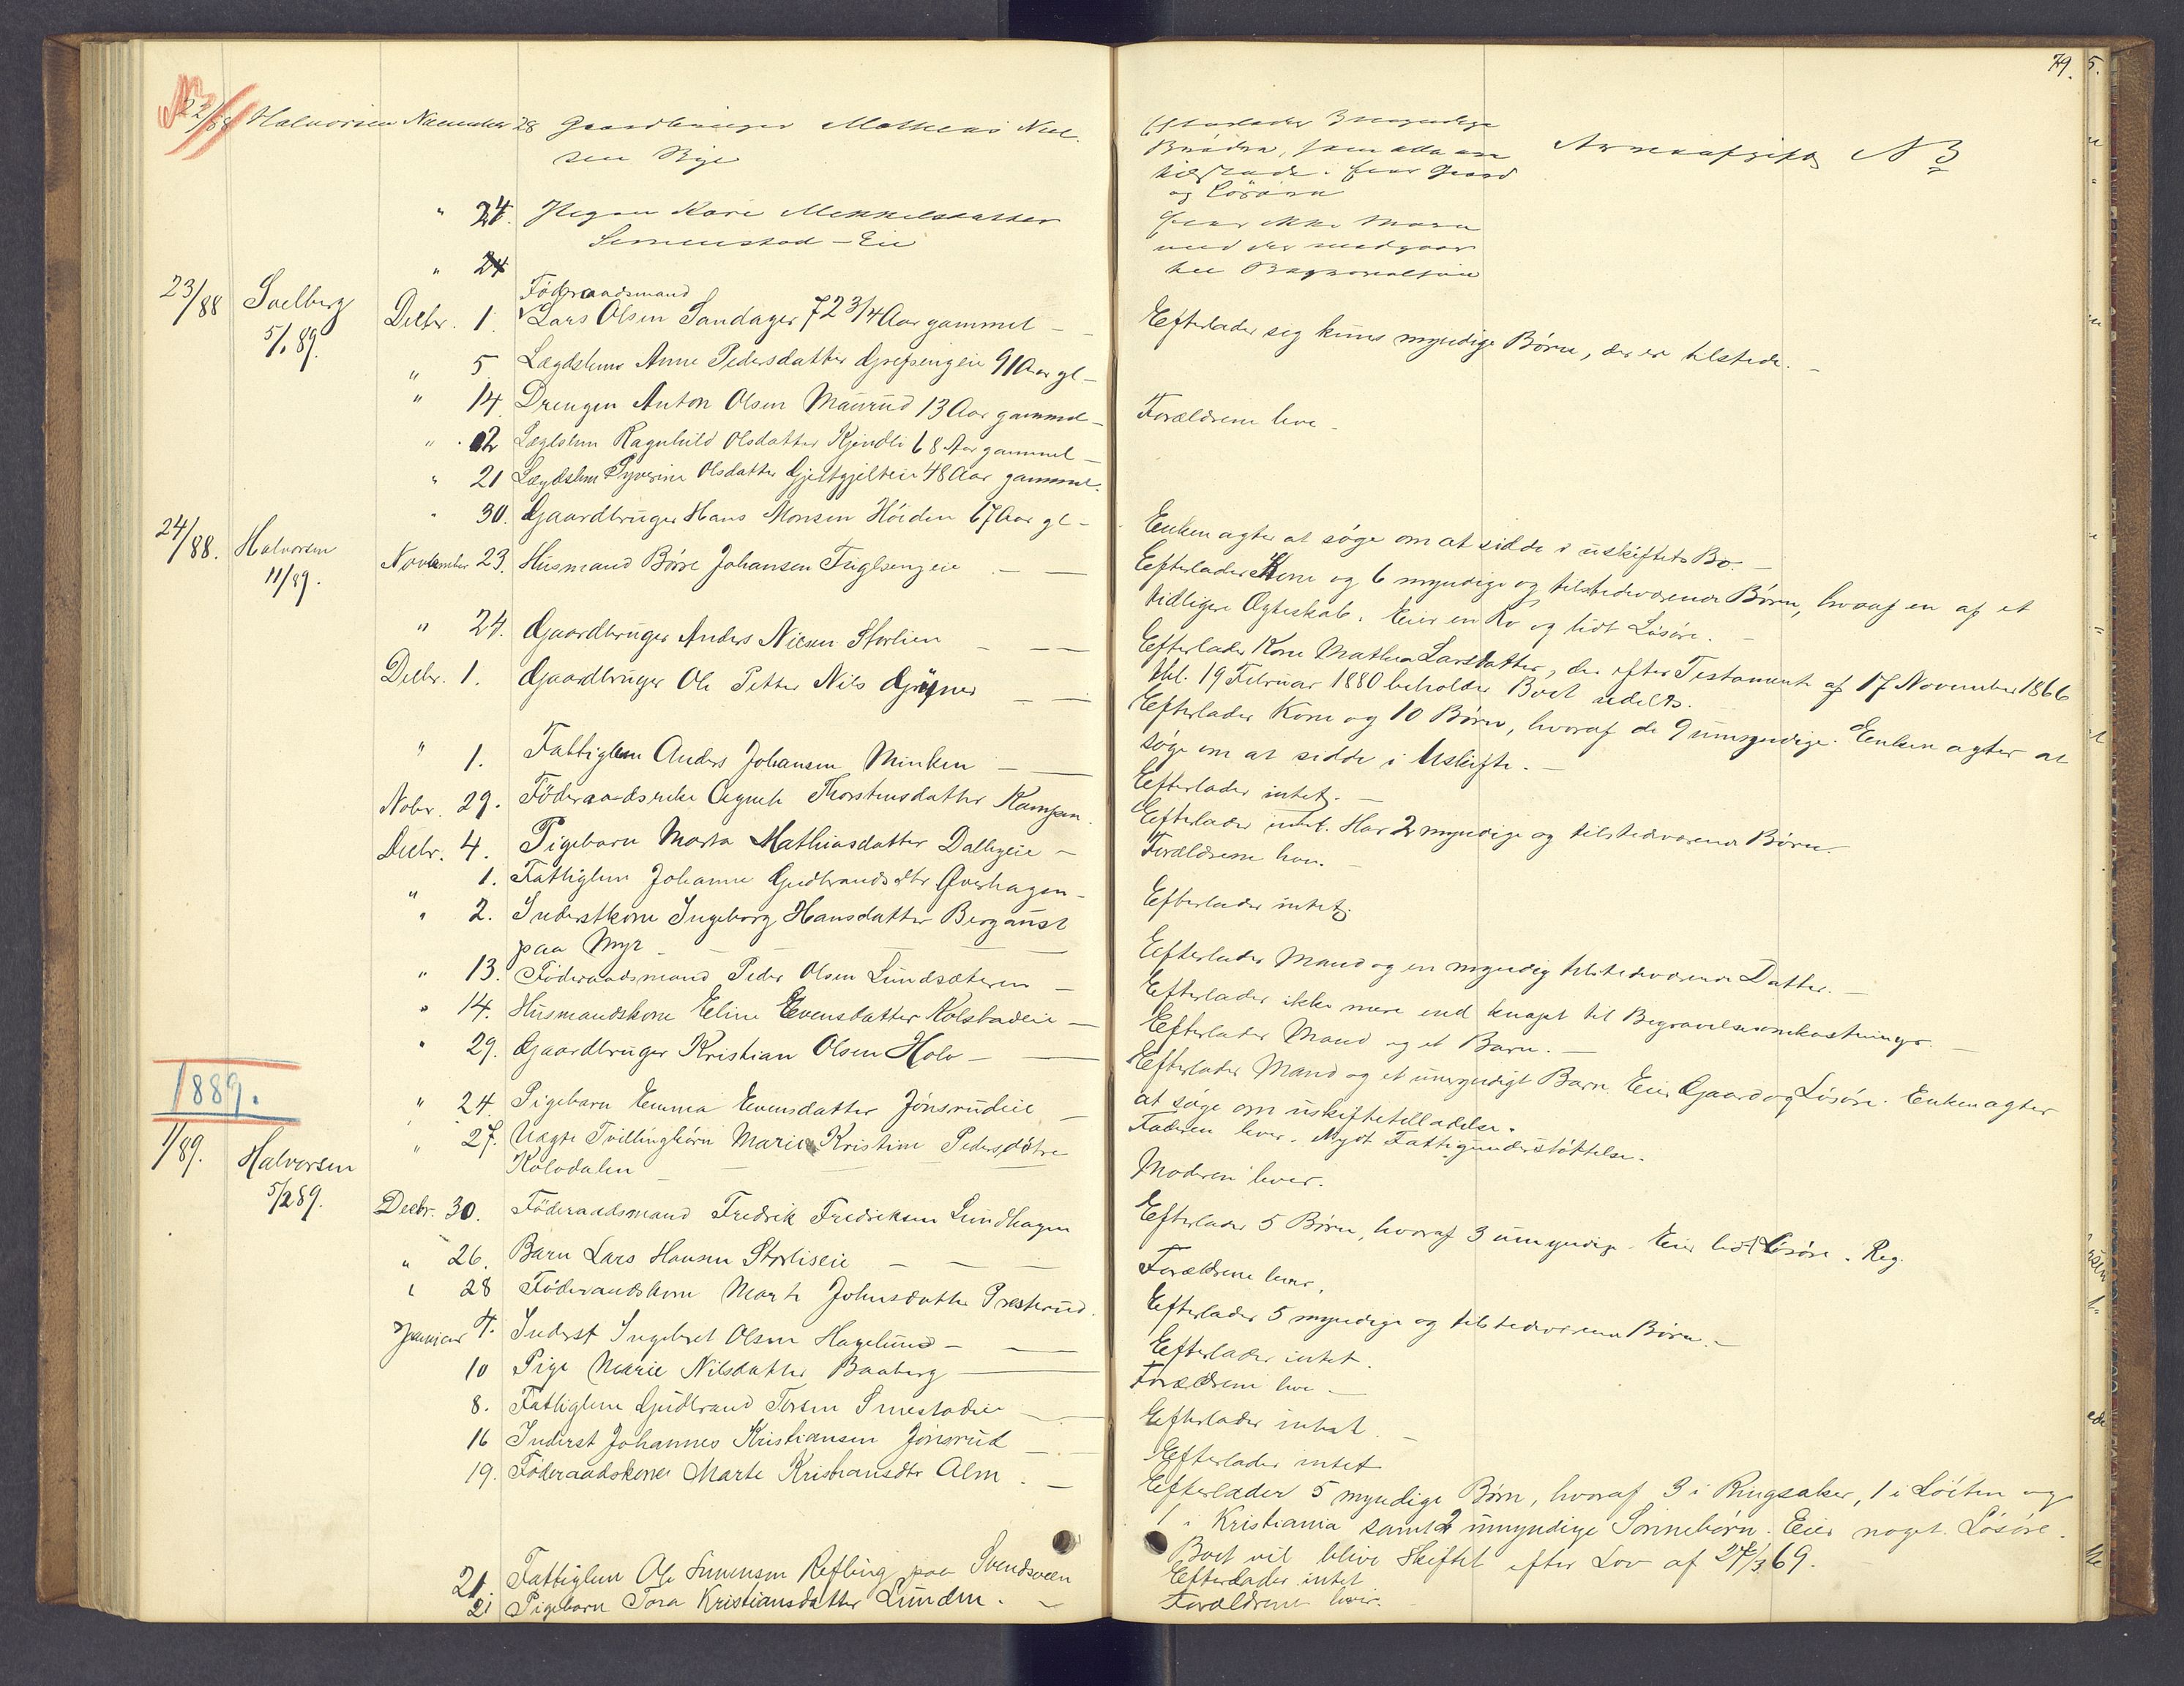 79.
22/88 Halvorsen November 28 Gaardbruger Mathias Niel-
sen Rye
Efterlader 3 myndige
Brødre, som alle ere
tilstede. Eier Gaard
og Løsøre
Arveafgift N 3
" 24. Pigen Kari Mikkelsdatter
Simenstad-Eie
Eier ikke mere
end der medgaar
til Begravelsen
" 24
23/88 Solberg
5/1 89.
Föderaadsmand
Decbr. 1. Lars Olsen Sandager 72 3/4 Aar gammel -
Efterlader seg kuns myndige Børn, der er tilstede. -
" 5 Lægdslem Anne Pedersdatter Grefsengeie 91 Aar gl -
" 14. Drengen Anton Olsen Maurud 13 Aar gammel -
Forældrene leve -
" 12 Lægdslem Ragnhild Olsdatter Kjendli 68 Aar gammel -
" 21 Lægdslem Syverine Olsdatter Gjeltgjelteie 48 Aar gammel.
" 30. Gaardbruger Hans Monsen Höiden 67 Aar gl -
Enken agter at søge om at sidde i uskiftet Bo. -
24/88. Halvorsen
11/1 89.
November 23. Husmand Börre Johansen Fuglsengeie - -
Efterlader Kone og 6 myndige og tilstedeværende Børn, hvoraf en af et
tidligere Ægteskab. Eier en Ko og lidt Løsøre. -
" 24. Gaardbruger Anders Nilsen Storlien - - -
Efterlader Kone Mathea Larsdatter, der efter Testamente af 17 November 1866
thl. 19 Februar 1880 beholder Boet udelt.
Decbr. 1. Gaardbruger Ole Petter Nils - -
Efterlader Kone og 10 Børn, hvoraf de 9 umyndige. Enken agter at
søge om at sidde i Uskifte. -
" 1. Fattiglem Anders Johansen Minken - -
Efterlader intet. -
Nobr. 29. Föderaadsenke Agnete Thorstensdatter Kampen.
Efterlader intet. Har 2 myndige og tilstedeværende Børn. -
Decbr. 4. Pigebarn Marta Mathiasdatter Dalbyeie -
Forældrene leve. -
" 1. Fattiglem Johanne Gudbrandsdtr Överhagen -
Efterlader intet.
" 2. Inderstkone Ingeborg Hansdatter Bergaust
paa Myr - - - -
Efterlader Mand og en myndig tilstedeværende Datter. -
" 13. Föderaadsmand Peder Olsen Lundsæteren -
Efterlader ikke mere end knapt til Begravelsesomkostninger. -
" 14. Husmandskone Eline Evensdatter Kolstadeie -
Efterlader Mand og et Barn. -
" 29. Gaardbruger Kristian Olsen Holo - -
Efterlader Mand og et umyndigt Barn. Eier Gaard og Løsøre. Enken agter
at søge om uskiftetilladelse.
1889.
" 24. Pigebarn Emma Evensdatter Jönsrudeie -
Faderen lever. Nydt Fattigunderstøttelse.
1/89. Halvorsen
5/2 89.
" 27. Uægte Tvillingbörn Marie Kristine Pedersdøtre
Kolodalen -
Moderen lever.
Decbr. 30. Föderaadsmand Fredrik Fredriksen Lundhagen
Efterlader 5 Børn, hvoraf 3 umyndige. Eier lidt Løsøre. Reg.
" 26. Barn Lars Hansen Storliseie - - -
Forældrene lever.
" 28 Föderaadskone Marte Johnsdatter Presterud.
Efterlader 5 myndige og tilstedeværende Børn. -
Januar 7. Inderst Ingebret Olsen Hagelund - -
Efterlader intet.
10 Pige Marie Nilsdatter Baaberg -
Forældrene leve -
8. Fattiglem Gudbrand Torsen Smestadeie -
Efterlader intet. -
16 Inderst Johannes Kristiansen Jönsrud -
Efterlader intet
19. Föderaadskone Marte Kristiansdtr Alm. -
Efterlader 5 myndige Børn, hvoraf 3 i Ringsaker, 1 i Löiten og
1 i Kristiania samt 2 umyndige Sønnebørn. Eier noget Løsøre.
Boet vil blive Skiftet efter Lov af 27/3 69.
21. Fattiglem Ole Simensen Refling paa Svendsveen
Efterlader intet
21 Pigebarn Tora Kristiansdatter Lunden. -
Forældrene lever.